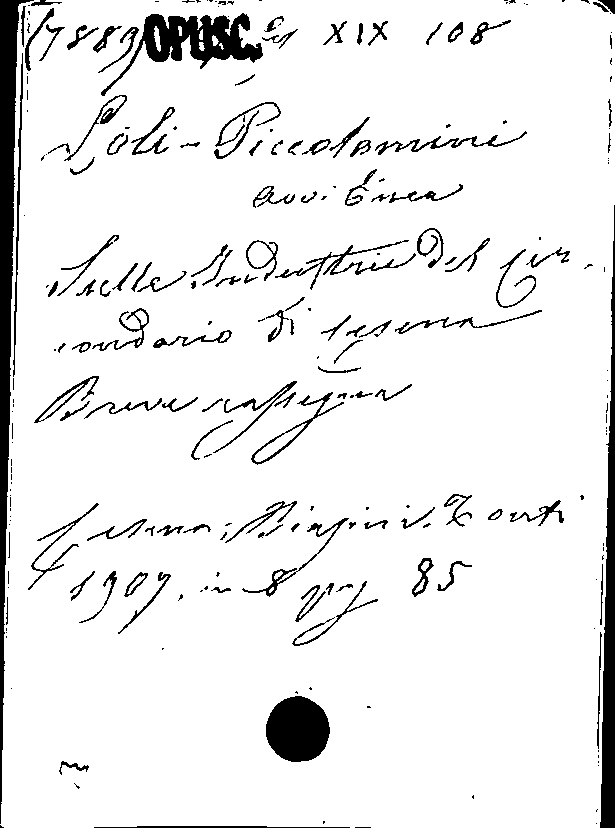 (7889) OPUSC. XIX 108
Loli-Piccolomini
avv. Enea
Sulle Industrie del cir-
condario di Cesena
Breve rassegna
Cesena, Biasini-Tonti
1907, in-8 pag 85